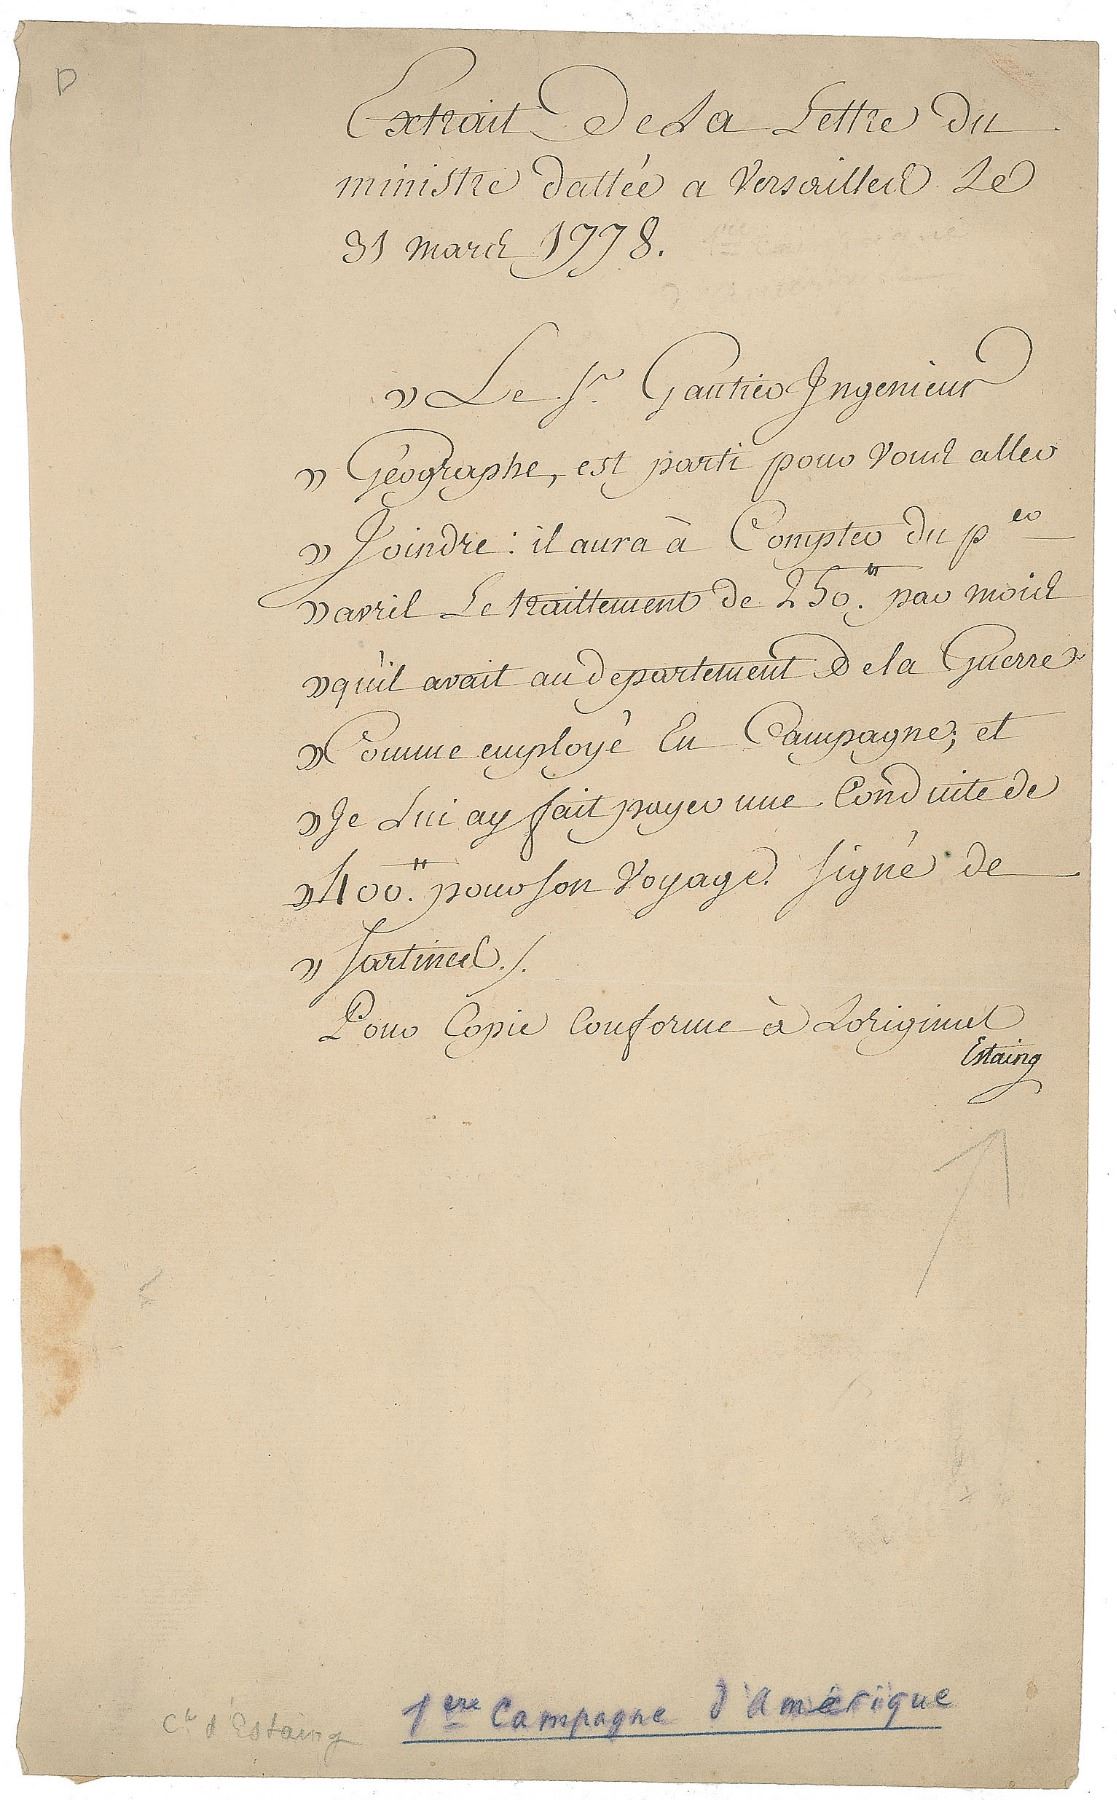 D
Extrait De La Lettre Du
ministre dattée a Versailles Le
31 mars 1778.
" Le Sr. Gautier Ingenieur
" Géographe, est parti pour vous aller
" Joindre : il aura à Compter du per
" avril Le traittement de 250tt. par mois
" qu'il avait au departement De la Guerre
" Comme employé En Campagne; et
" Je Lui ay fait payer une Conduite de
" 400tt. pour son Voyage. Signé de
" Sartines ./.
Pour Copie Conforme à Loriginal
Estaing
Cte d'Estaing
1ere Campagne d'Amérique